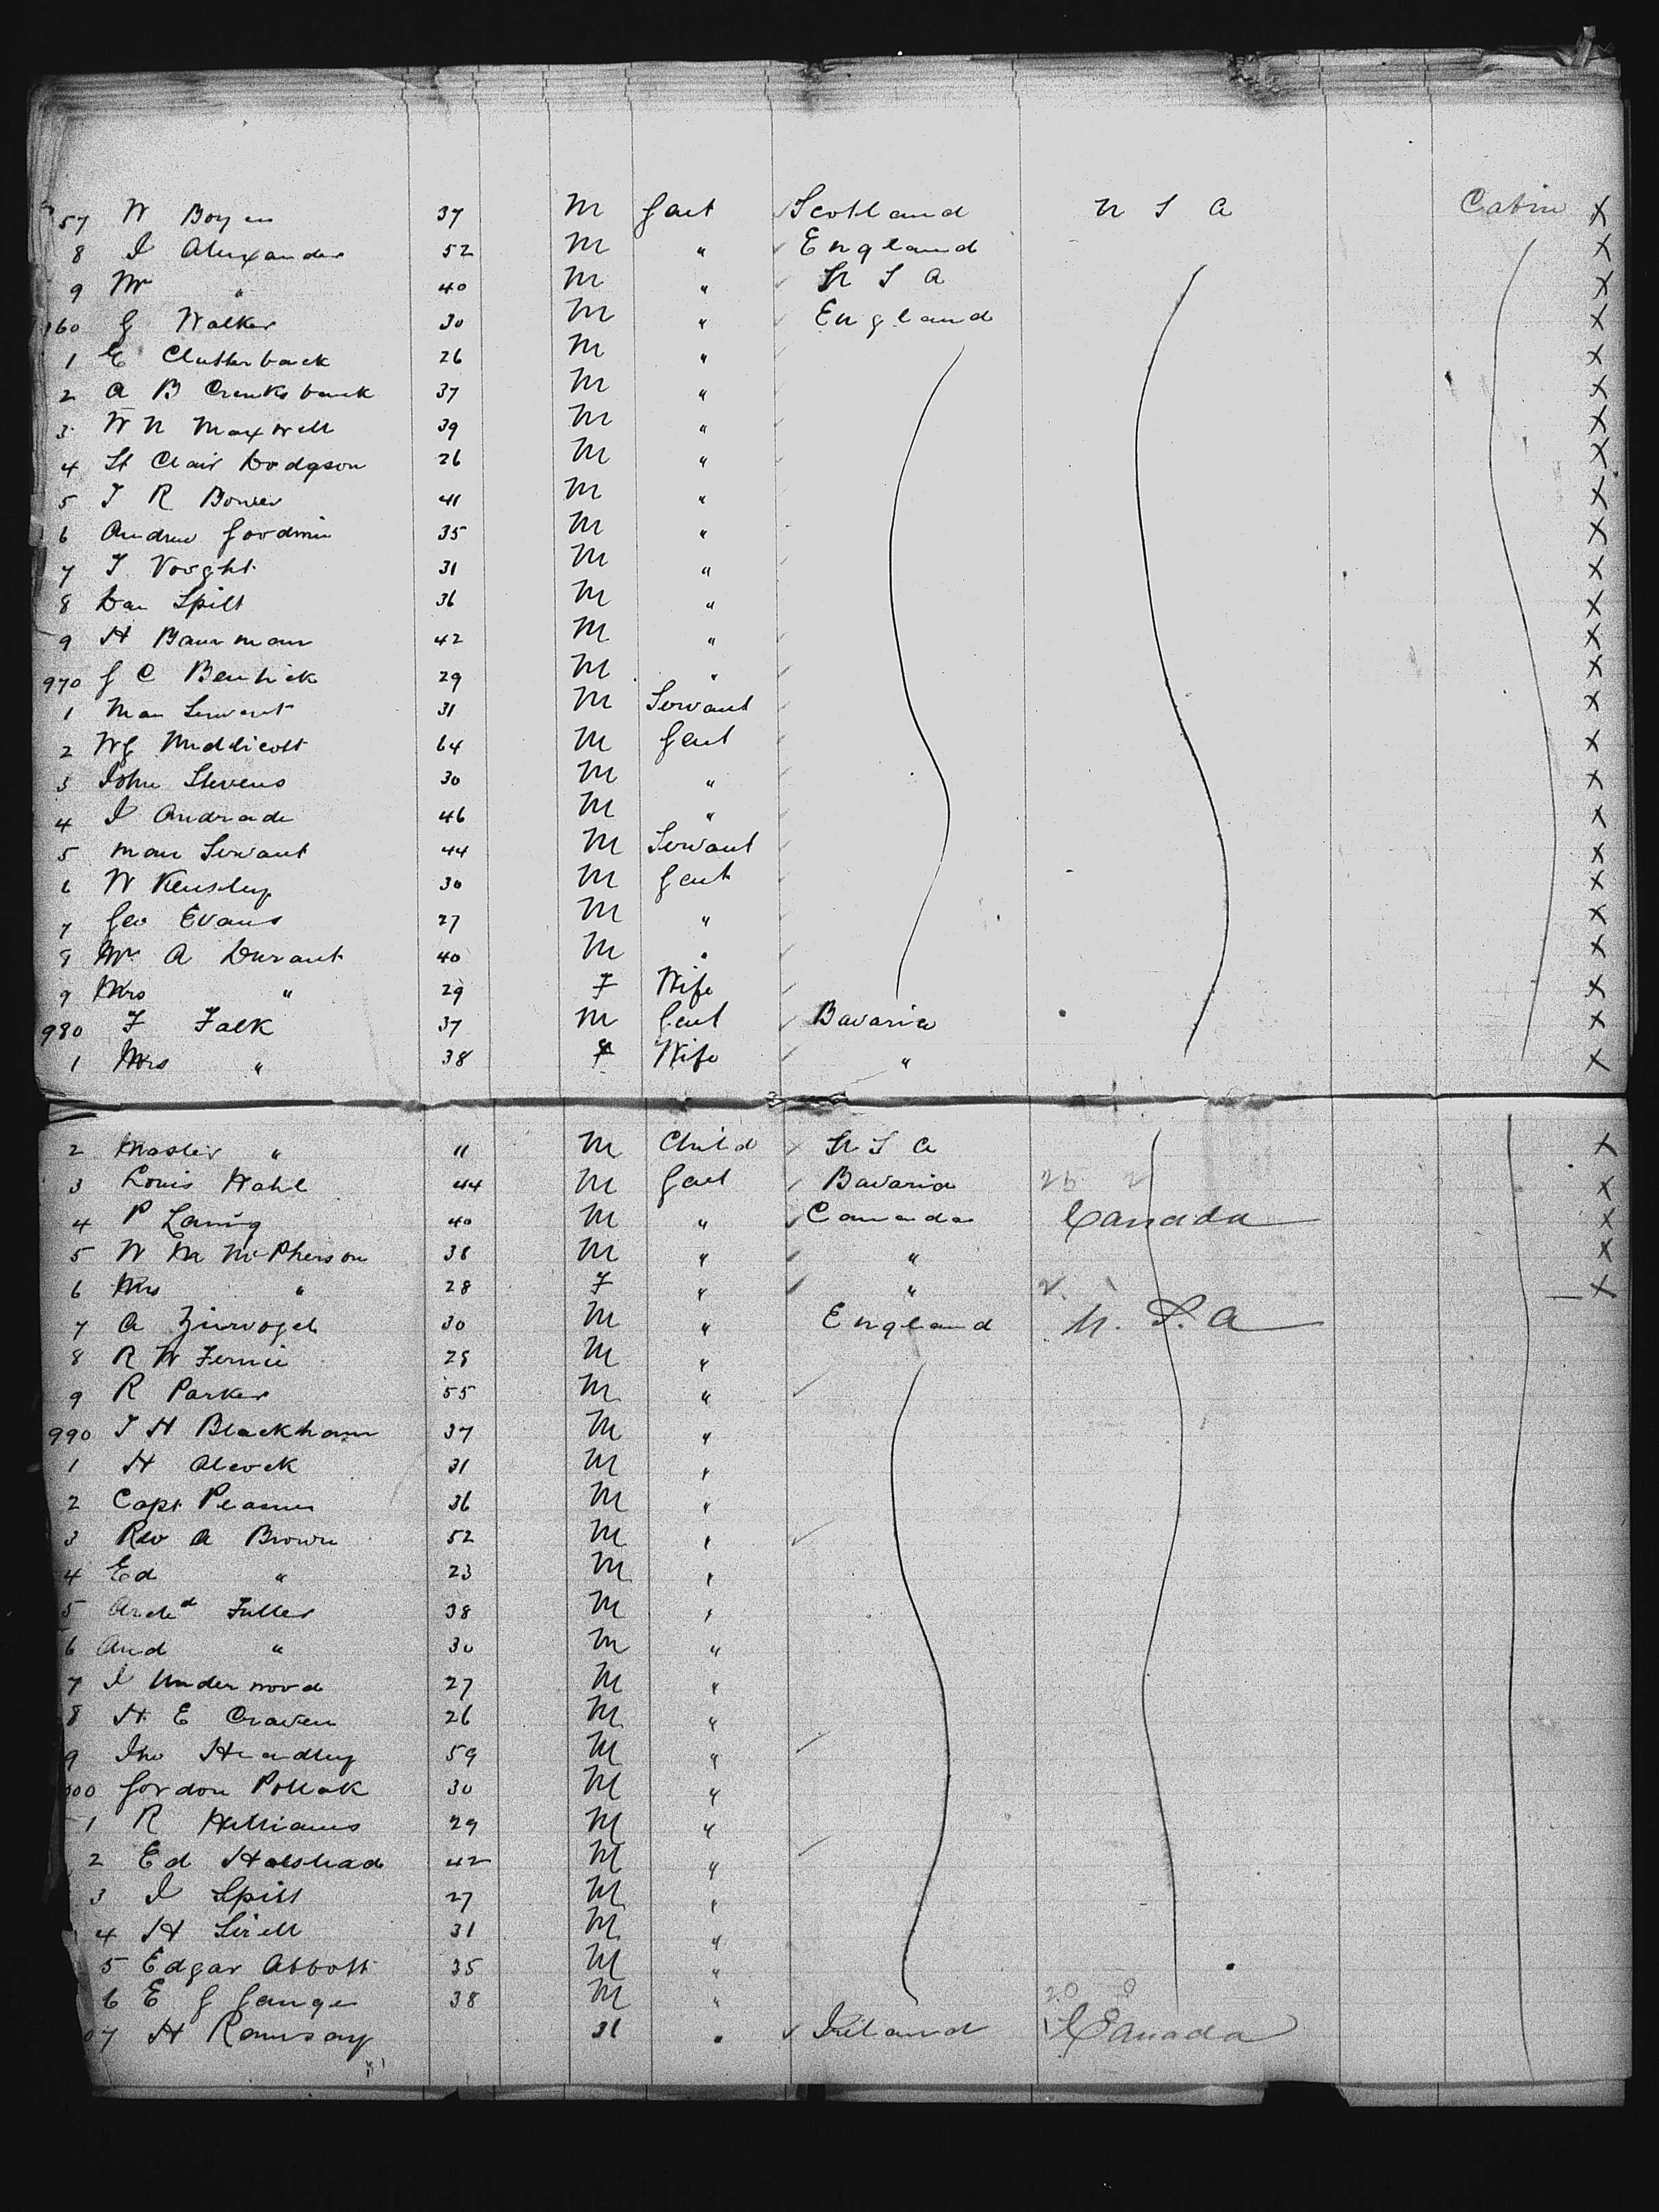 57 W Boyen 37 M Gent Scotland U S A Cabin X
8 J Alexander 52 M " England X
9 Mr " 40 M " U S A X
960 G Walker 30 M " England X
1 E Clutterback 26 M " X
2 A B Cruikshank 37 M " X
3 W N Maxwell 39 M " X
4 St Clair Dodgson 26 M " X
5 J R Bower 41 M " X
6 Andrew Goodwin 35 M " X
7 J Vooght 31 M " X
8 Dan Spill 36 M " X
9 H Bauman 42 M " X
970 G C Bentick 29 M " X
1 Man Servant 31 M Servant X
2 W G Middlicott 64 M Gent X
3 John Stevens 30 M " X
4 J Andrade 46 M " X
5 Man Servant 44 M Servant X
6 W Kensley 30 M Gent X
7 Geo Evans 27 M " X
8 Mr A Durant 40 M " X
9 Mrs " 29 F Wife X
980 F Falk 37 M Gent Bavaria X
1 Mrs " 38 F Wife " X
2 Master " 11 M Child U S A X
3 Louis Wahl 44 M Gent Bavaria 25 2 X
4 P Lanig 40 M " Canada Canada X
5 W M McPherson 38 M " " X
6 Mrs " 28 F " " X
7 A Zurvogel 30 M " England U. S. A
8 R W Fernie 28 M "
9 R Parker 55 M "
990 J H Blackham 37 M "
1 H Alcock 31 M "
2 Capt Pearson 36 M "
3 Rev A Brown 52 M "
4 Ed " 23 M "
5 Archd Fuller 38 M "
6 And " 30 M "
7 J Underwood 27 M "
8 H E Craven 26 M "
9 Jno Headley 59 M "
000 Gordon Pollak 30 M "
1 R Williams 29 M "
2 Ed Halshad 42 M "
3 J Spill 27 M "
4 H Sirell 31 M "
5 Edgar Abbott 35 M "
6 E G Gange 38 M " 20
07 H Ramsay 31 " Ireland Canada